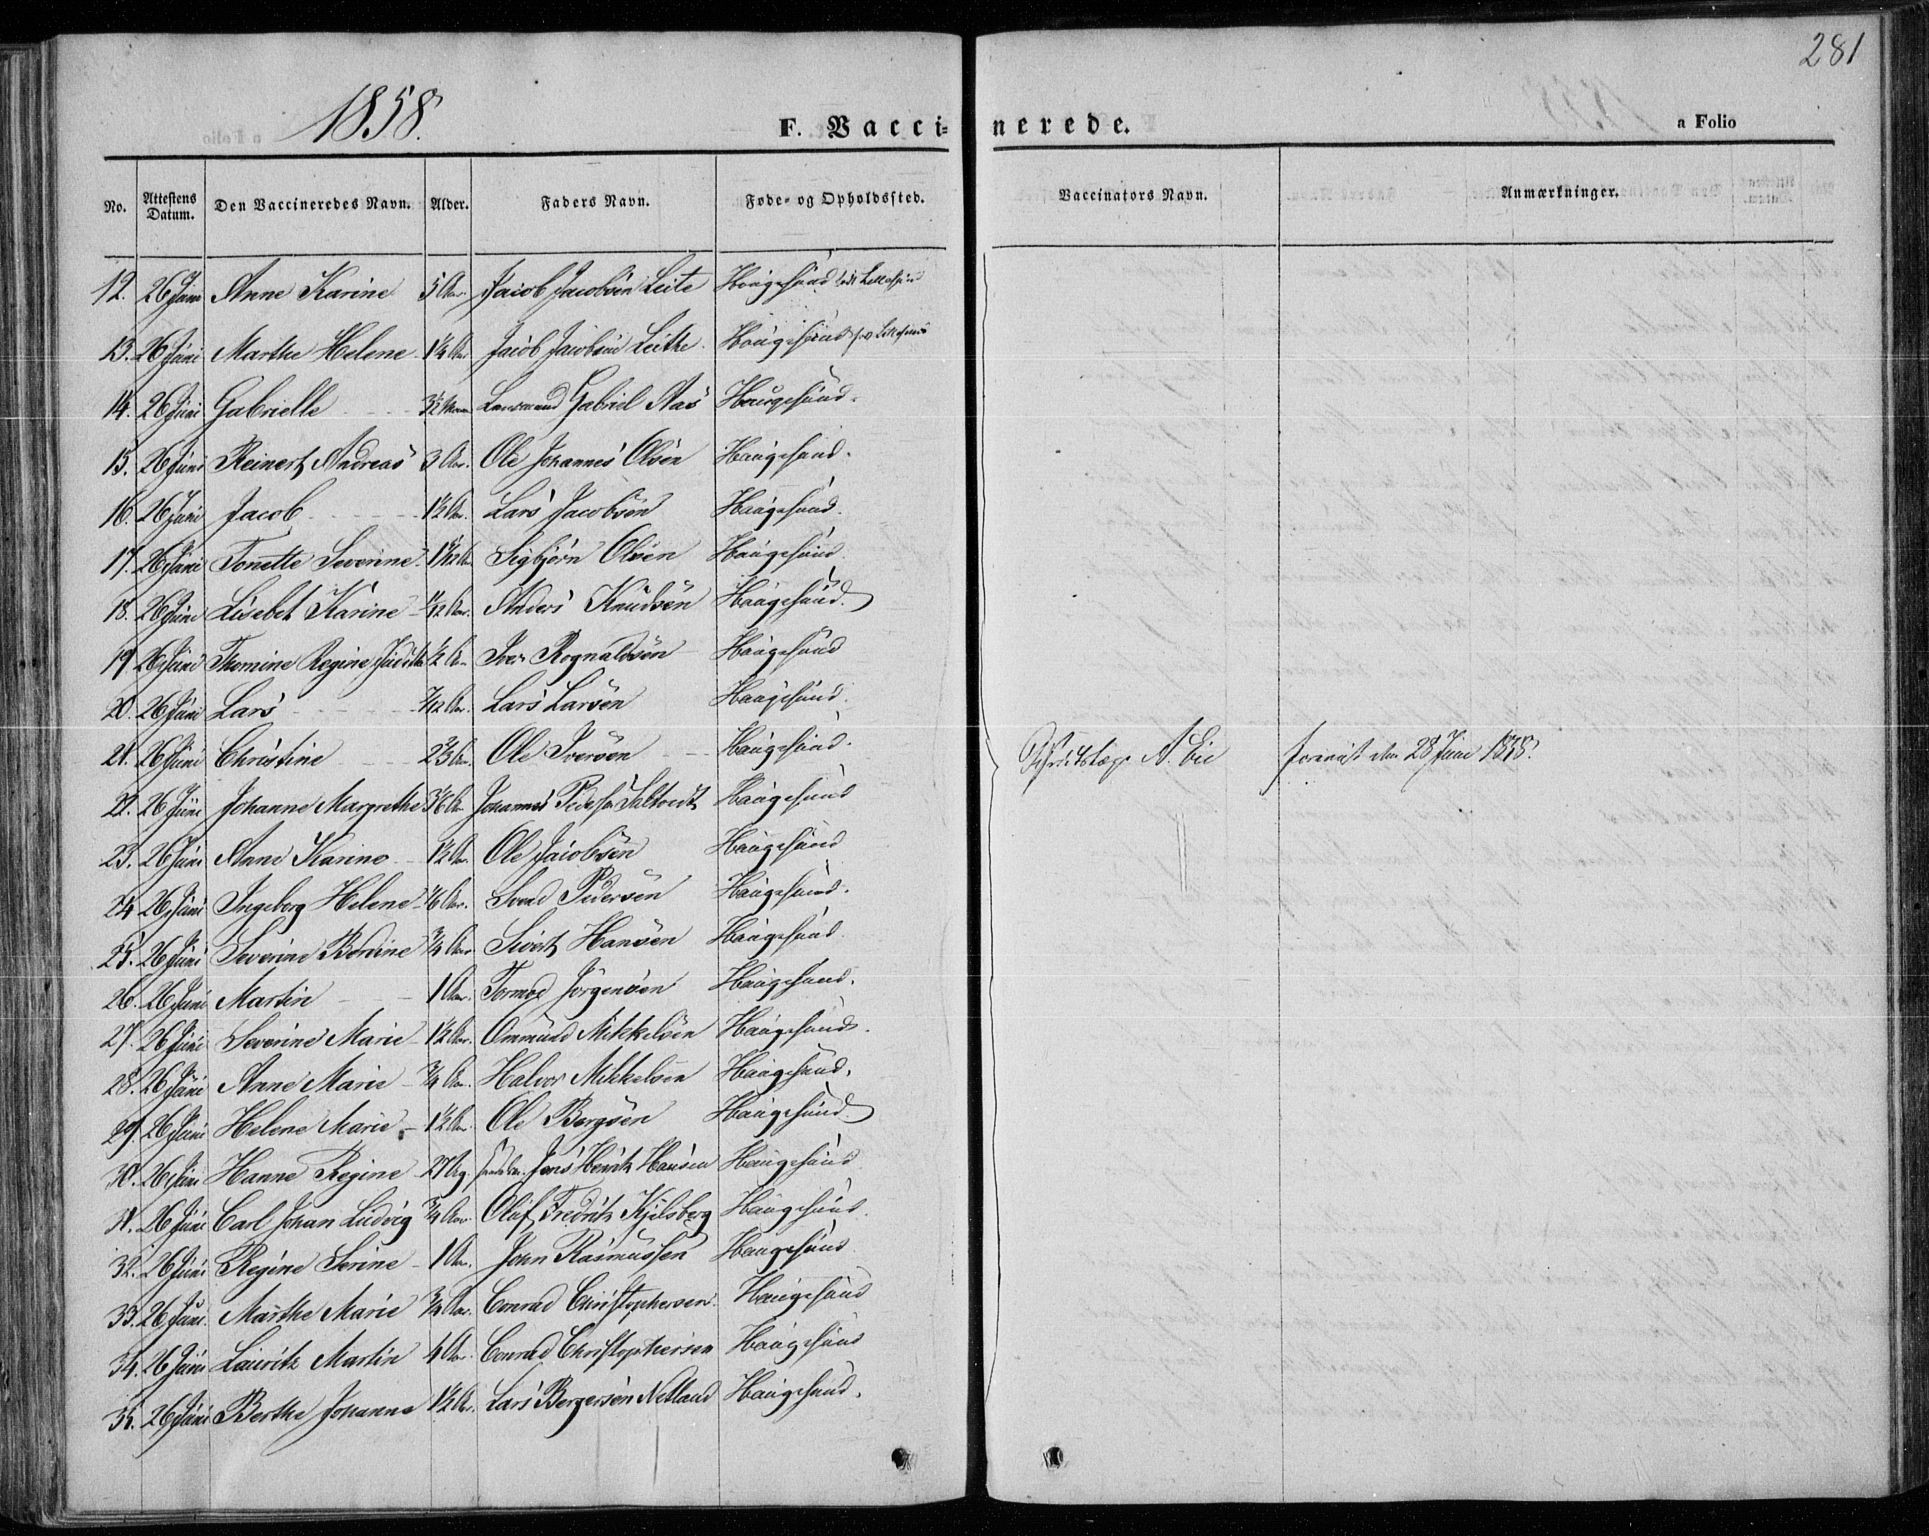 281
1858.
F. Vaccinerede.
a Folio
No. Attestens Datum. Den Vaccineredes Navn. Alder. Faders Navn. Føde- og Opholdssted. Vaccinators Navn. Anmærkninger.
12. 26 Juni Anne Karine 5 Aar. Jacob Jacobsen Leite Haugesund
13. 26 Juni Marthe Helene 1¼ Aar Jacob Jacobsen Leithe. Haugesund
14. 26 Juni Gabrielle Gabriel Aas Haugesund.
15. 26 Juni Reinert Andreas 3 Aar. Ole Johannes Olsen Haugesund.
16. 26 Juni Jacob 1½ Aar. Lars Jacobsen Haugesund.
17. 26 Juni Tonette Severine Sigbjørn Olsen Haugesund.
18. 26 Juni Lisebet Karine Anders Knudsen Haugesund.
19. 26 Juni Thomine Regine ½ Aar Iver Rognaldsen Haugesund
20. 26 Juni Lars 7/12 Aar. Lars Larsen Haugesund.
21. 26 Juni Christine 2⅔ Aar. Ole Iversen Haugesund. A. Eie forevist den 28 Juni 1858.
22. 26 Juni Johanne Margrethe Johannes Haugesund
23. 26 Juni Anne Karine 1½ Aar. Ole Jacobsen Haugesund
24. 26 Juni Ingeborg Helene Svend Pedersen Haugesund.
25. 26 Juni Severine Bordine ¾ Aar Sivert Hansen Haugesund.
26. 26 Juni Martin 1 Aar. Tormod Jörgensen Haugesund.
27. 26 Juni Severine Marie 1½ Aar. Ommund Mikkelsen Haugesund.
28. 26 Juni Anne Marie ¾ Aar. Halvor Mikkelsen Haugesund.
29. 26 Juni Helene Marie 1½ Aar. Ole Bergsen Haugesund.
30. 26 Juni Hanne Regine Jens Henrik Hansen Haugesund
31. 26 Juni Carl Johan Ludvig ¾ Aar. Oluf Fredrik Kjelsberg Haugesund.
32. 26 Juni Regine Serine 1 Aar. John Rasmussen Haugesund
33. 26 Juni. Marthe Marie ¾ Aar. Conrad Christophersen. Haugesund
34. 26 Juni Lauritz Martin 4 Aar. Conrad Christophersen Haugesund
35. 26 Juni Berthe Johanna 1½ Aar. Lars Bergersen Netland Haugesund.